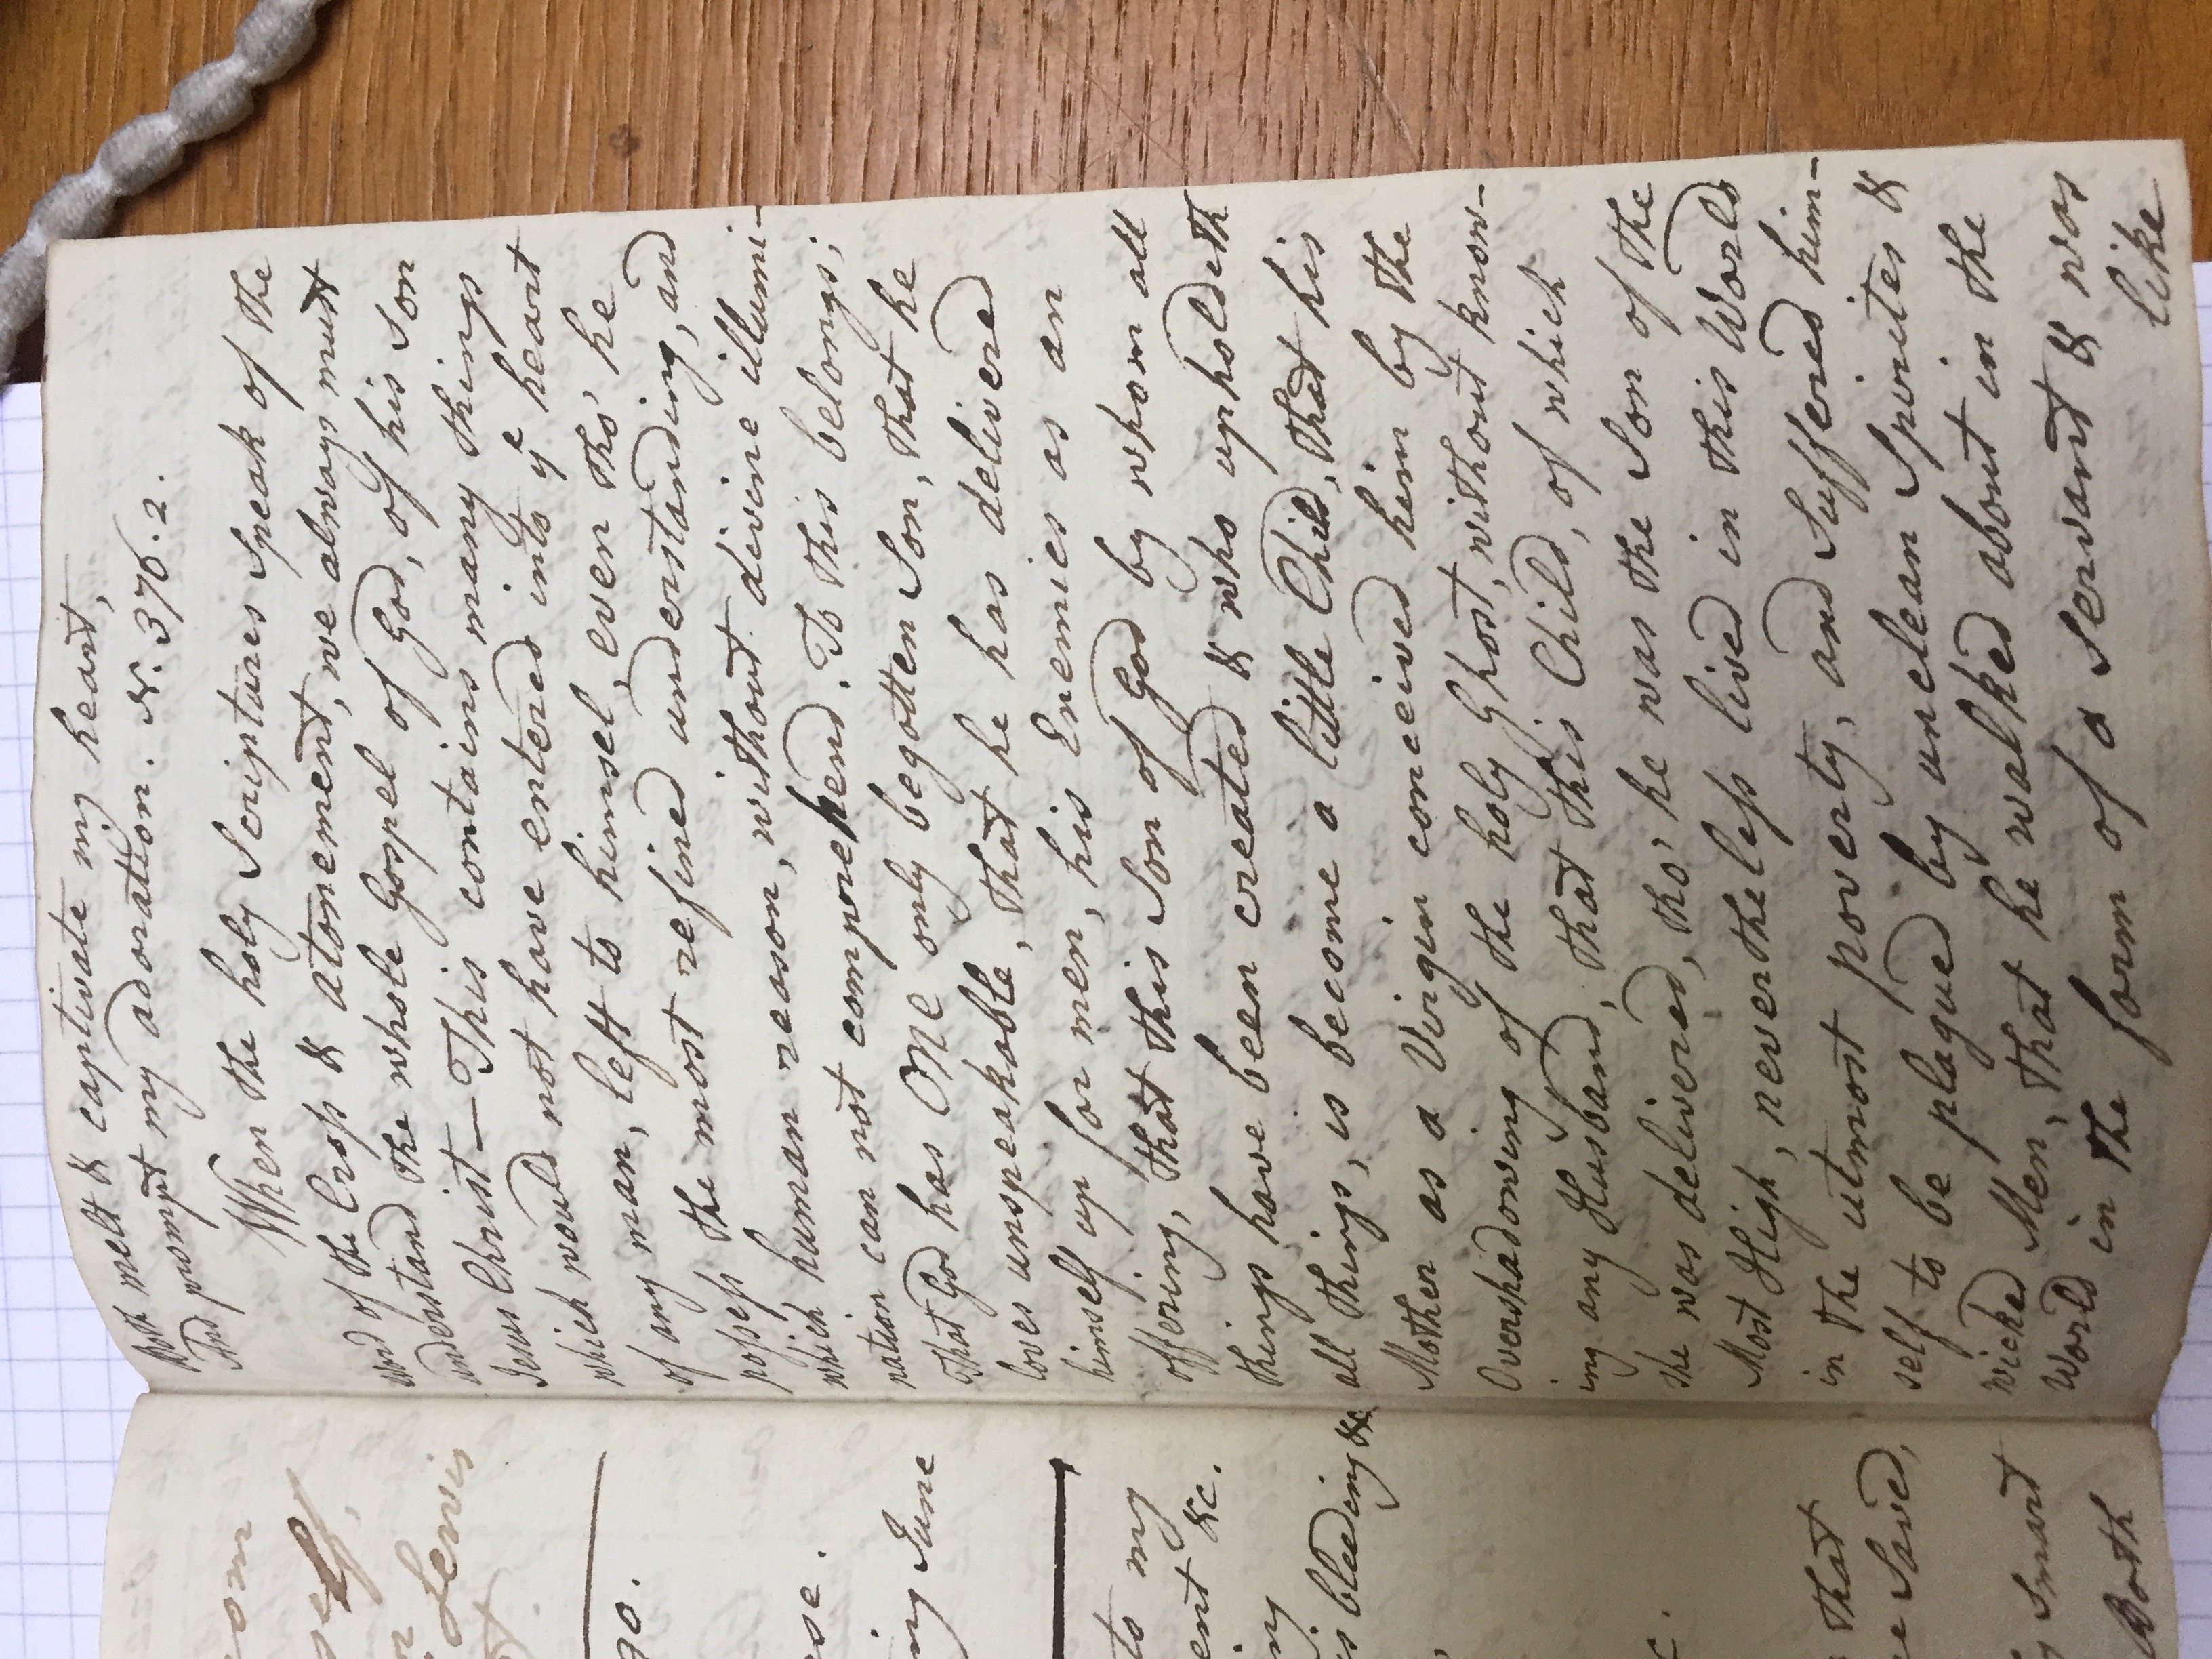 com
self,
Lewis
90.
ese.
ing June
to my
ent &c.
ing
is bleeding &c
c.
that
ue Saved,
y Smart
Both
Both melt & captivate my heart,
And prompt my adoration. N. 376.2.
When the holy Scriptures speak of the
word of the Croſs & atonement, we always must
understand the whole Gospel of God, of his Son
Jesus Christ — This contains many things
which would not have entered into yᵉ heart
of any man, left to himsel, even tho' he
poſseſs the most refined understanding, and
which human reason, without divine illumi-
nation can not comprehend. To this belongs;
That God has ONE only begotten Son, that he
loves unspeakable, that he has delivered
himself up for men, his Enemies as an
offering, that this Son of God by whom all
things have been created & who upholdeth
all things, is become a little Child, that his
Mother as a Virgin conceived him by the
Overshadowing of the holy Ghost, without know-
ing any Husband, that this Child, of which
she was delivered, tho' he was the Son of the
Most High, nevertheleſs lived in this World
in the utmost poverty, and Suffered him-
self to be plagued by unclean Spirites &
wicked Men, that he walked about in the
World in the form of a Servant & was
like